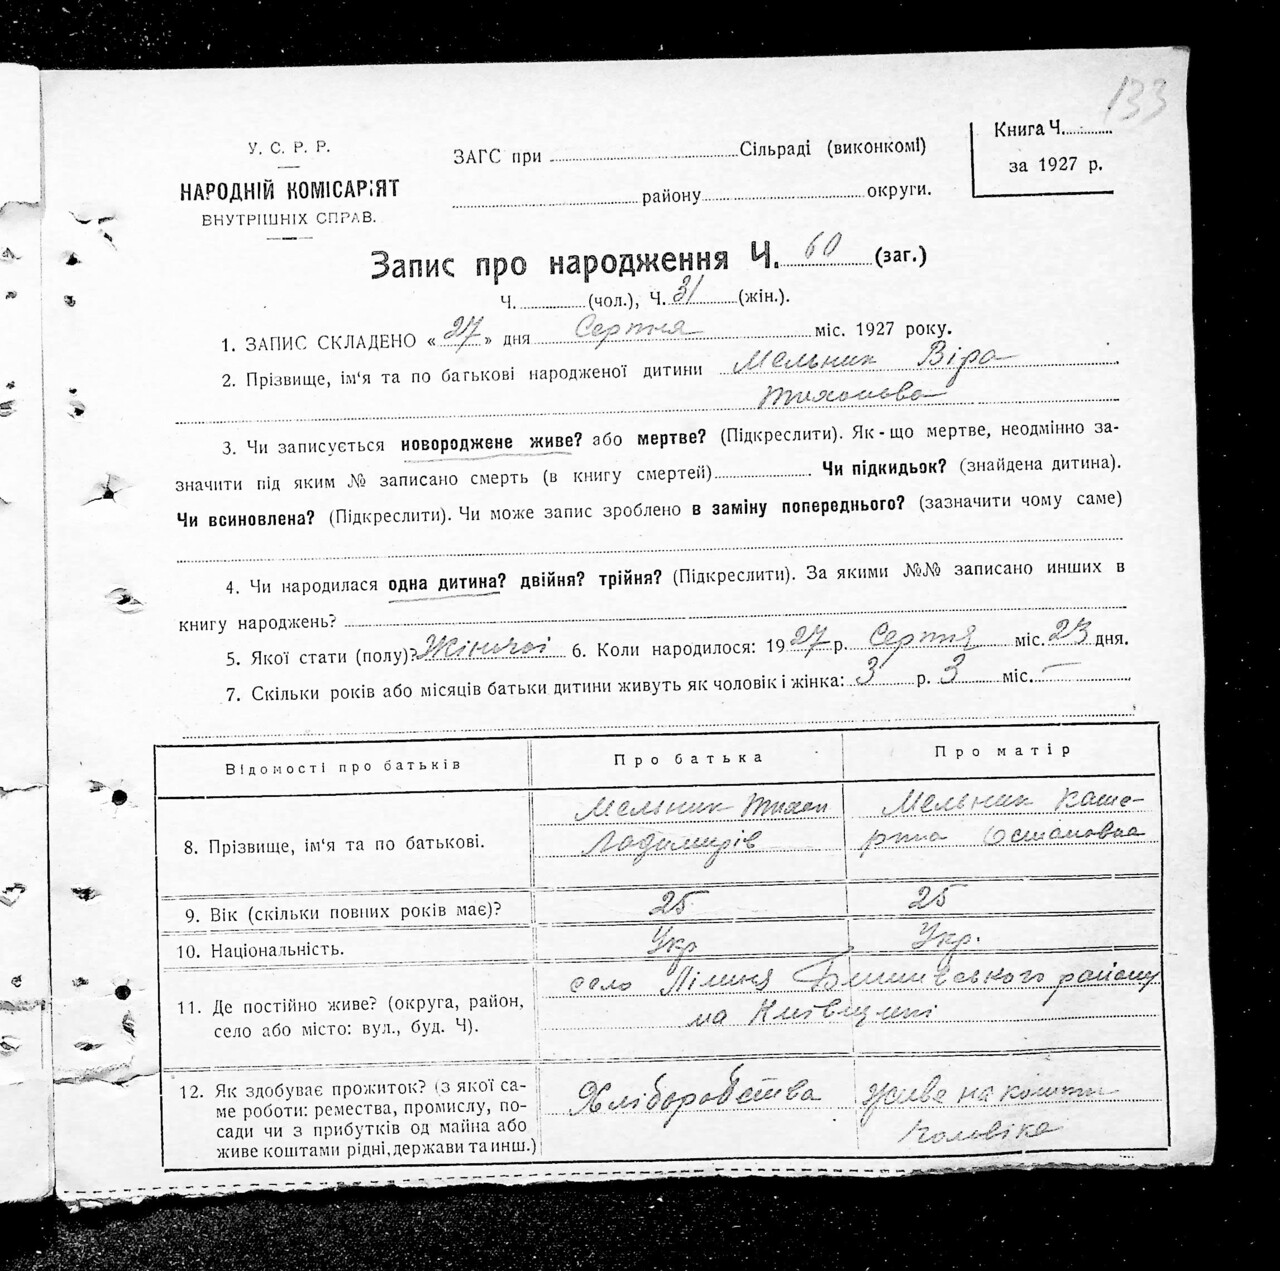 133
У. С. Р. Р.
НАРОДНІЙ КОМІСАРІЯТ
ВНУТРІШНІХ СПРАВ.
ЗАГС при Сільраді (виконкомі)
району округи.
Книга Ч.
за 1927 р.
Запис про народження Ч. 60 (заг.)
Ч. (чол.), Ч. 31 (жін.).
1. ЗАПИС СКЛАДЕНО « 27 » дня Серпня міс. 1927 року.
2. Прізвище, ім'я та по батькові народженої дитини Мельник Віра
Тихонова
3. Чи записується новороджене живе? або мертве? (Підкреслити). Як-що мертве, неодмінно за-
значити під яким № записано смерть (в книгу смертей) Чи підкидьок? (знайдена дитина).
Чи всиновлена? (Підкреслити). Чи може запис зроблено в заміну попереднього? (зазначити чому саме)
4. Чи народилася одна дитина? двійня? трійня? (Підкреслити). За якими №№ записано инших в
книгу народжень?
5. Якої стати (полу)? Жіночої 6. Коли народилося: 1927 р. Серпня міс. 23 дня.
7. Скільки років або місяців батьки дитини живуть як чоловік і жінка: 3 р. 3 міс. —
Відомості про батьків
Про батька
Про матір
8. Прізвище, ім'я та по батькові.
Мельник Тихон
Ладимирів
Мельник Кате-
рина Остаповна
9. Вік (скільки повних років має)?
25
25
10. Національність.
Укр
Укр.
11. Де постійно живе? (округа, район,
село або місто: вул., буд. Ч).
село району
на Київщині
12. Як здобуває прожиток? (з якої са-
ме роботи: ремества, промислу, по-
сади чи з прибутків од майна або
живе коштами рідні, держави та инш.)
Хліборобства
Живе на кошти
чоловіка